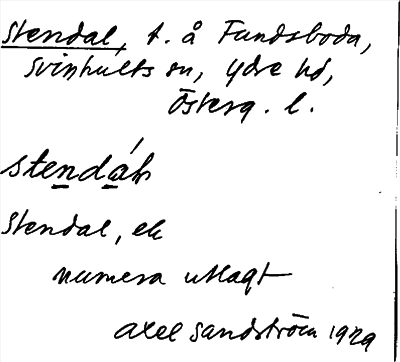 Stendal, t. å Fundsboda,
Svinhults sn, Ydre hd,
Österg. l.
stendáh
Stendal, ek
numera utlagt
Axel Sandström 1929